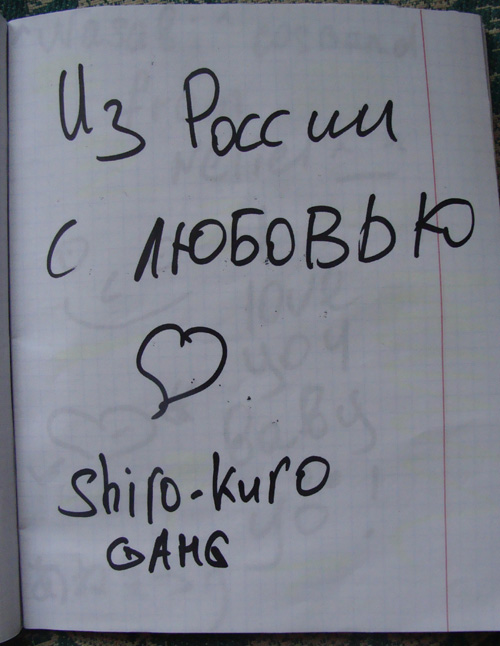 Из России
с любовью
shiro-kuro
GANG